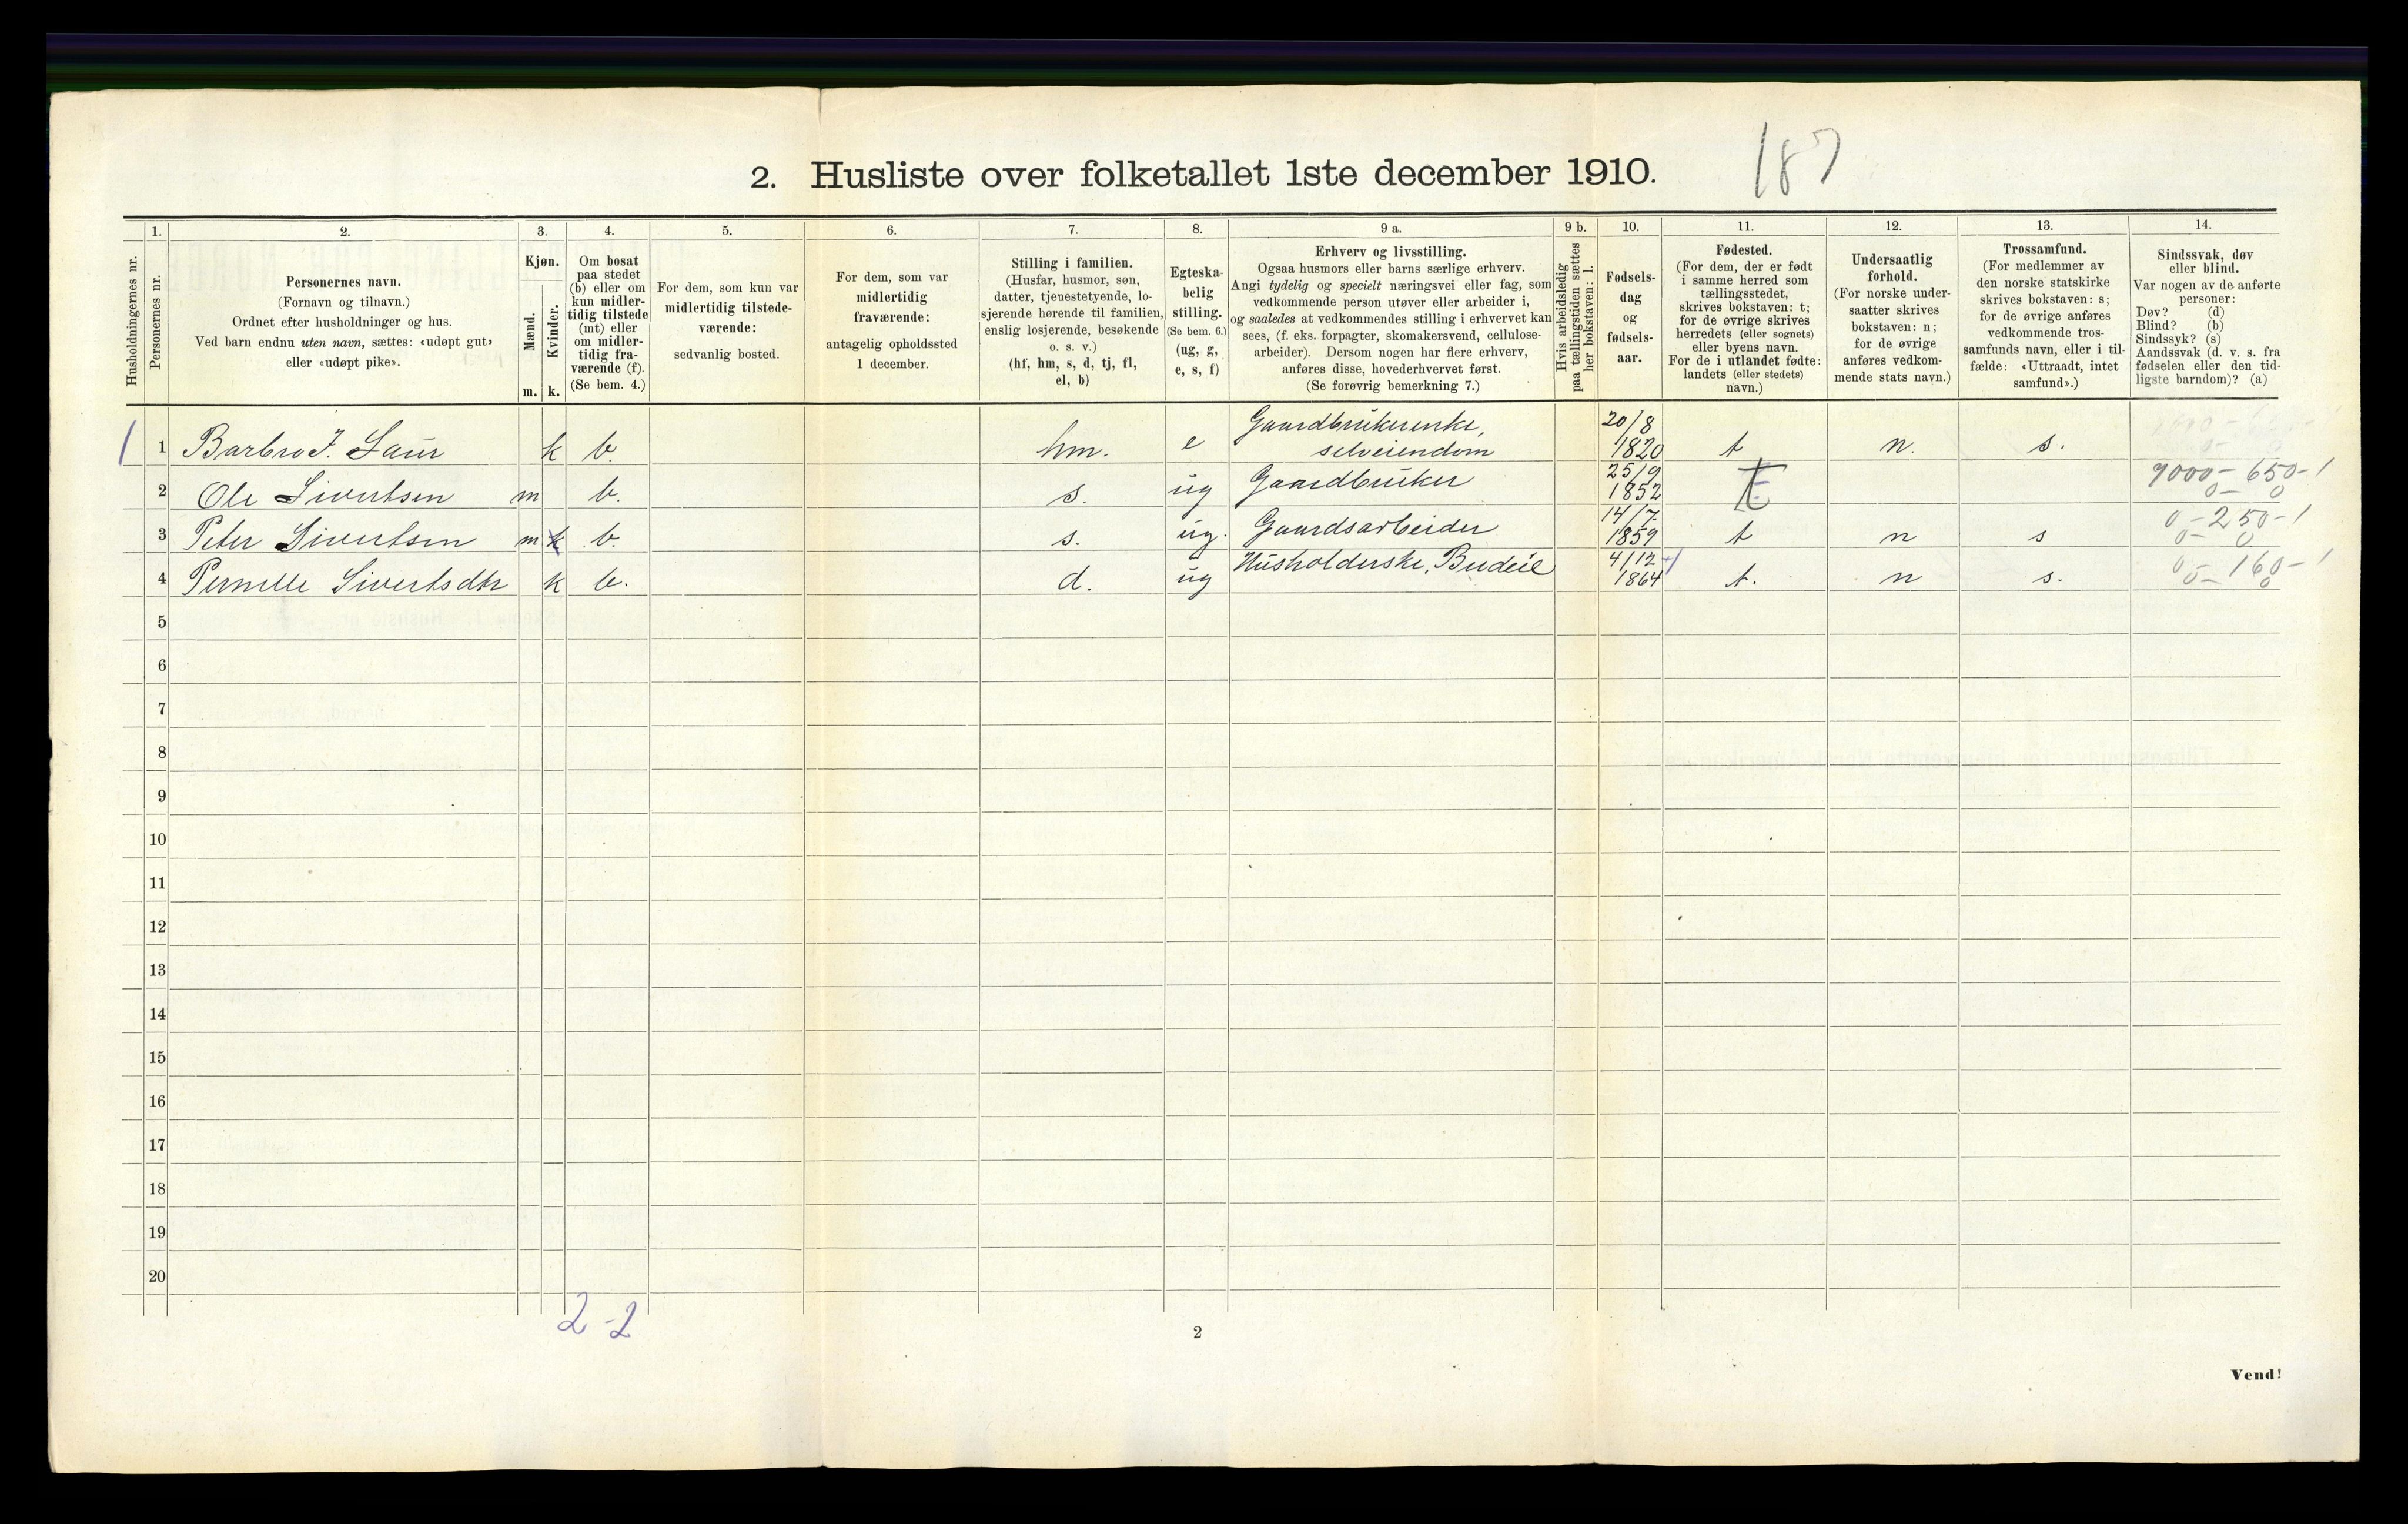 187
2. Husliste over folketallet 1ste december 1910.
Husholdningernes nr.
1.
Personernes nr.
2.
Personernes navn.
(Fornavn og tilnavn.)
Ordnet efter husholdninger og hus.
Ved barn endnu uten navn, sættes: «udøpt gut»
eller «udøpt pike».
3.
Kjøn.
Mænd.
Kvinder.
m. k.
4.
Om bosat
paa stedet
(b) eller om
kun midler-
tidig tilstede
(mt) eller
om midler-
tidig fra-
værende (f).
(Se bem. 4.)
5.
For dem, som kun var
midlertidig tilstede-
værende:
sedvanlig bosted.
6.
For dem, som var
midlertidig
fraværende:
antagelig opholdssted
1 december.
7.
Stilling i familien.
(Husfar, husmor, søn,
datter, tjenestetyende, lo-
sjerende hørende til familien,
enslig losjerende, besøkende
o. s. v.)
(hf, hm, s, d, tj, fl,
el, b)
8.
Egteska-
belig
stilling.
(Se bem. 6.)
(ug, g,
e, s, f)
9 a.
Erhverv og livsstilling.
Ogsaa husmors eller barns særlige erhverv.
Angi tydelig og specielt næringsvei eller fag, som
vedkommende person utøver eller arbeider i,
og saaledes at vedkommendes stilling i erhvervet kan
sees, (f. eks. forpagter, skomakersvend, cellulose-
arbeider). Dersom nogen har flere erhverv,
anføres disse, hovederhvervet først.
(Se forøvrig bemerkning 7.)
9 b.
Hvis arbeidsledig
paa tællingstiden sættes
her bokstaven: l.
10.
Fødsels-
dag
og
fødsels-
aar.
11.
Fødested.
(For dem, der er født
i samme herred som
tællingsstedet,
skrives bokstaven: t;
for de øvrige skrives
herredets (eller sognets)
eller byens navn.
For de i utlandet fødte:
landets (eller stedets)
navn.)
12.
Undersaatlig
forhold.
(For norske under-
saatter skrives
bokstaven: n;
for de øvrige
anføres vedkom-
mende stats navn.)
13.
Trossamfund.
(For medlemmer av
den norske statskirke
skrives bokstaven: s;
for de øvrige anføres
vedkommende tros-
samfunds navn, eller i til-
fælde: «Uttraadt, intet
samfund».)
14.
Sindssvak, døv
eller blind.
Var nogen av de anførte
personer:
Døv? (d)
Blind? (b)
Sindssyk? (s)
Aandssvak (d. v. s. fra
fødselen eller den tid-
ligste barndom)? (a)
1 1 Barbro J. Laur k b. hm. e Gaardbrukerenke, selveiendom 20/8 1820 t n. s.
2 Ole Sivertsen m b. s. ug Gaardbruker 25/9 1852 t 7000 - 650 - 1
0 - 0
3 Peter Sivertsen m k b. s. ug. Gaardsarbeider 14/7 1859 t n s 0 - 250 - 1
0 - 0
4 Pernelle Sivertsdtr k b. d. ug Husholderske, Budeie 4/12 1864 t. n s. 0 - 160 - 1
0 - 0
5
6
7
8
9
10
11
12
13
14
15
16
17
18
19
20
2 - 2
2
Vend!